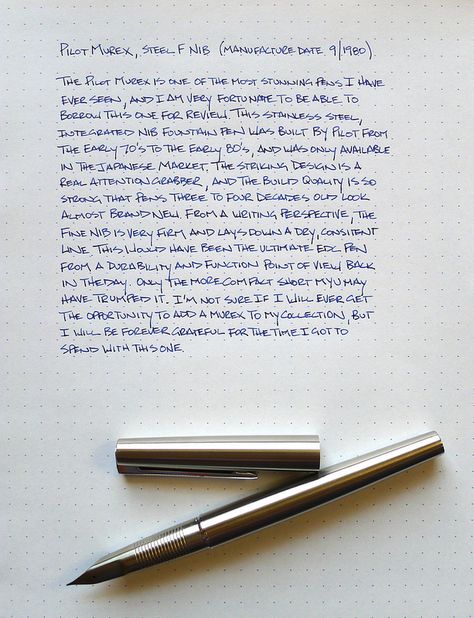 PILOT MUREX, STEEL F NIB (MANUFACTURE DATE 9/1980).
THE PILOT MUREX IS ONE OF THE MOST STUNNING PENS I HAVE
EVER SEEN, AND I AM VERY FORTUNATE TO BE ABLE TO
BORROW THIS ONE FOR REVIEW. THIS STAINLESS STEEL,
INTEGRATED NIB FOUNTAIN PEN WAS BUILT BY PILOT FROM
THE EARLY 70'S TO THE EARLY 80'S, AND WAS ONLY AVAILABLE
IN THE JAPANESE MARKET. THE STRIKING DESIGN IS A
REAL ATTENTION GRABBER, AND THE BUILD QUALITY IS SO
STRONG THAT PENS THREE TO FOUR DECADES OLD LOOK
ALMOST BRAND NEW. FROM A WRITING PERSPECTIVE, THE
FINE NIB IS VERY FIRM AND LAYS DOWN A DRY, CONSITENT
LINE. THIS WOULD HAVE BEEN THE ULTIMATE EDC PEN
FROM A DURABILITY AND FUNCTION POINT OF VIEW BACK
IN THE DAY. ONLY THE MORE COMPACT SHORT MYU MAY
HAVE TRUMPED IT. I'M NOT SURE IF I WILL EVER GET
THE OPPORTUNITY TO ADD A MUREX TO MY COLLECTION, BUT
I WILL BE FOREVER GRATEFUL FOR THE TIME I GOT TO
SPEND WITH THIS ONE.